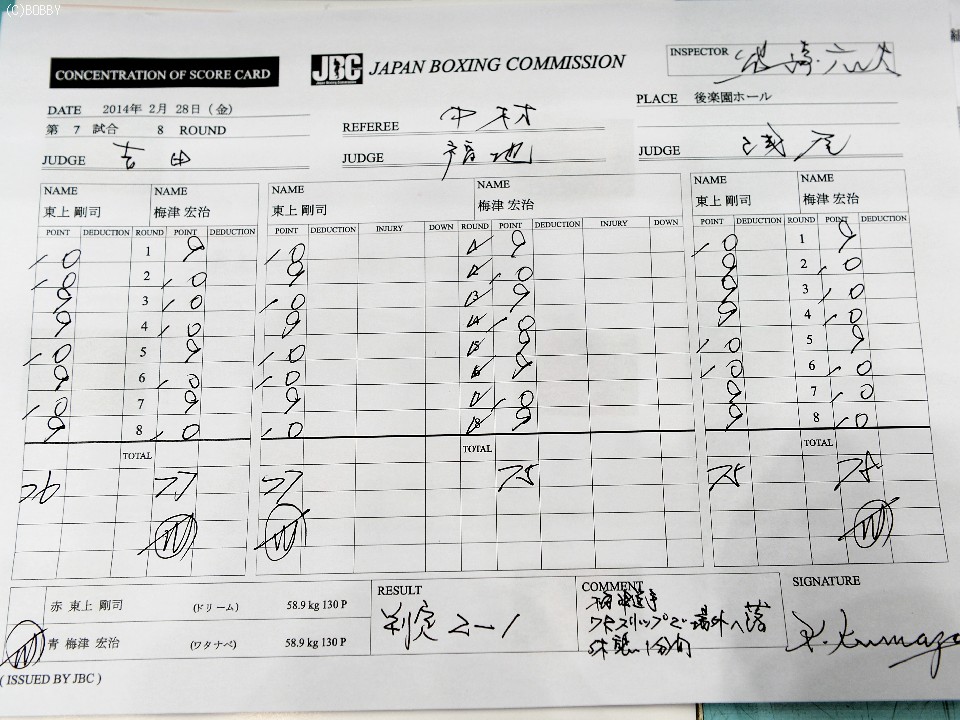 (C)BOBBY
CONCENTRATION OF SCORE CARD
JBC JAPAN BOXING COMMISSION
INSPECTOR
DATE 2014年 2月 28日 (金)
PLACE 後楽園ホール
第 7 試合 8 ROUND
REFEREE 中村
JUDGE 吉田
JUDGE 福地
JUDGE 浅尾
NAME NAME NAME NAME NAME NAME
東上 剛司 梅津 宏治 東上 剛司 梅津 宏治 東上 剛司 梅津 宏治
POINT DEDUCTION ROUND POINT DEDUCTION POINT DEDUCTION INJURY DOWN ROUND POINT DEDUCTION INJURY DOWN POINT DEDUCTION ROUND POINT DEDUCTION
10 1 9 10 1 9 10 1 9
10 2 10 9 2 10 9 2 10
9 3 10 10 3 9 9 3 10
9 4 10 9 4 10 9 4 10
10 5 9 10 5 9 10 5 9
9 6 10 10 6 9 10 6 10
10 7 9 9 7 10 9 7 10
9 8 10 10 8 9 9 8 10
TOTAL TOTAL TOTAL
76 77 77 75 75 78
W W W
赤 東上 剛司 (ドリーム) 58.9 kg 130 P
W 青 梅津 宏治 (ワタナベ) 58.9 kg 130 P
RESULT
判定 2-1
COMMENT
スリップで場外へ落
休憩1分内
SIGNATURE
( ISSUED BY JBC )